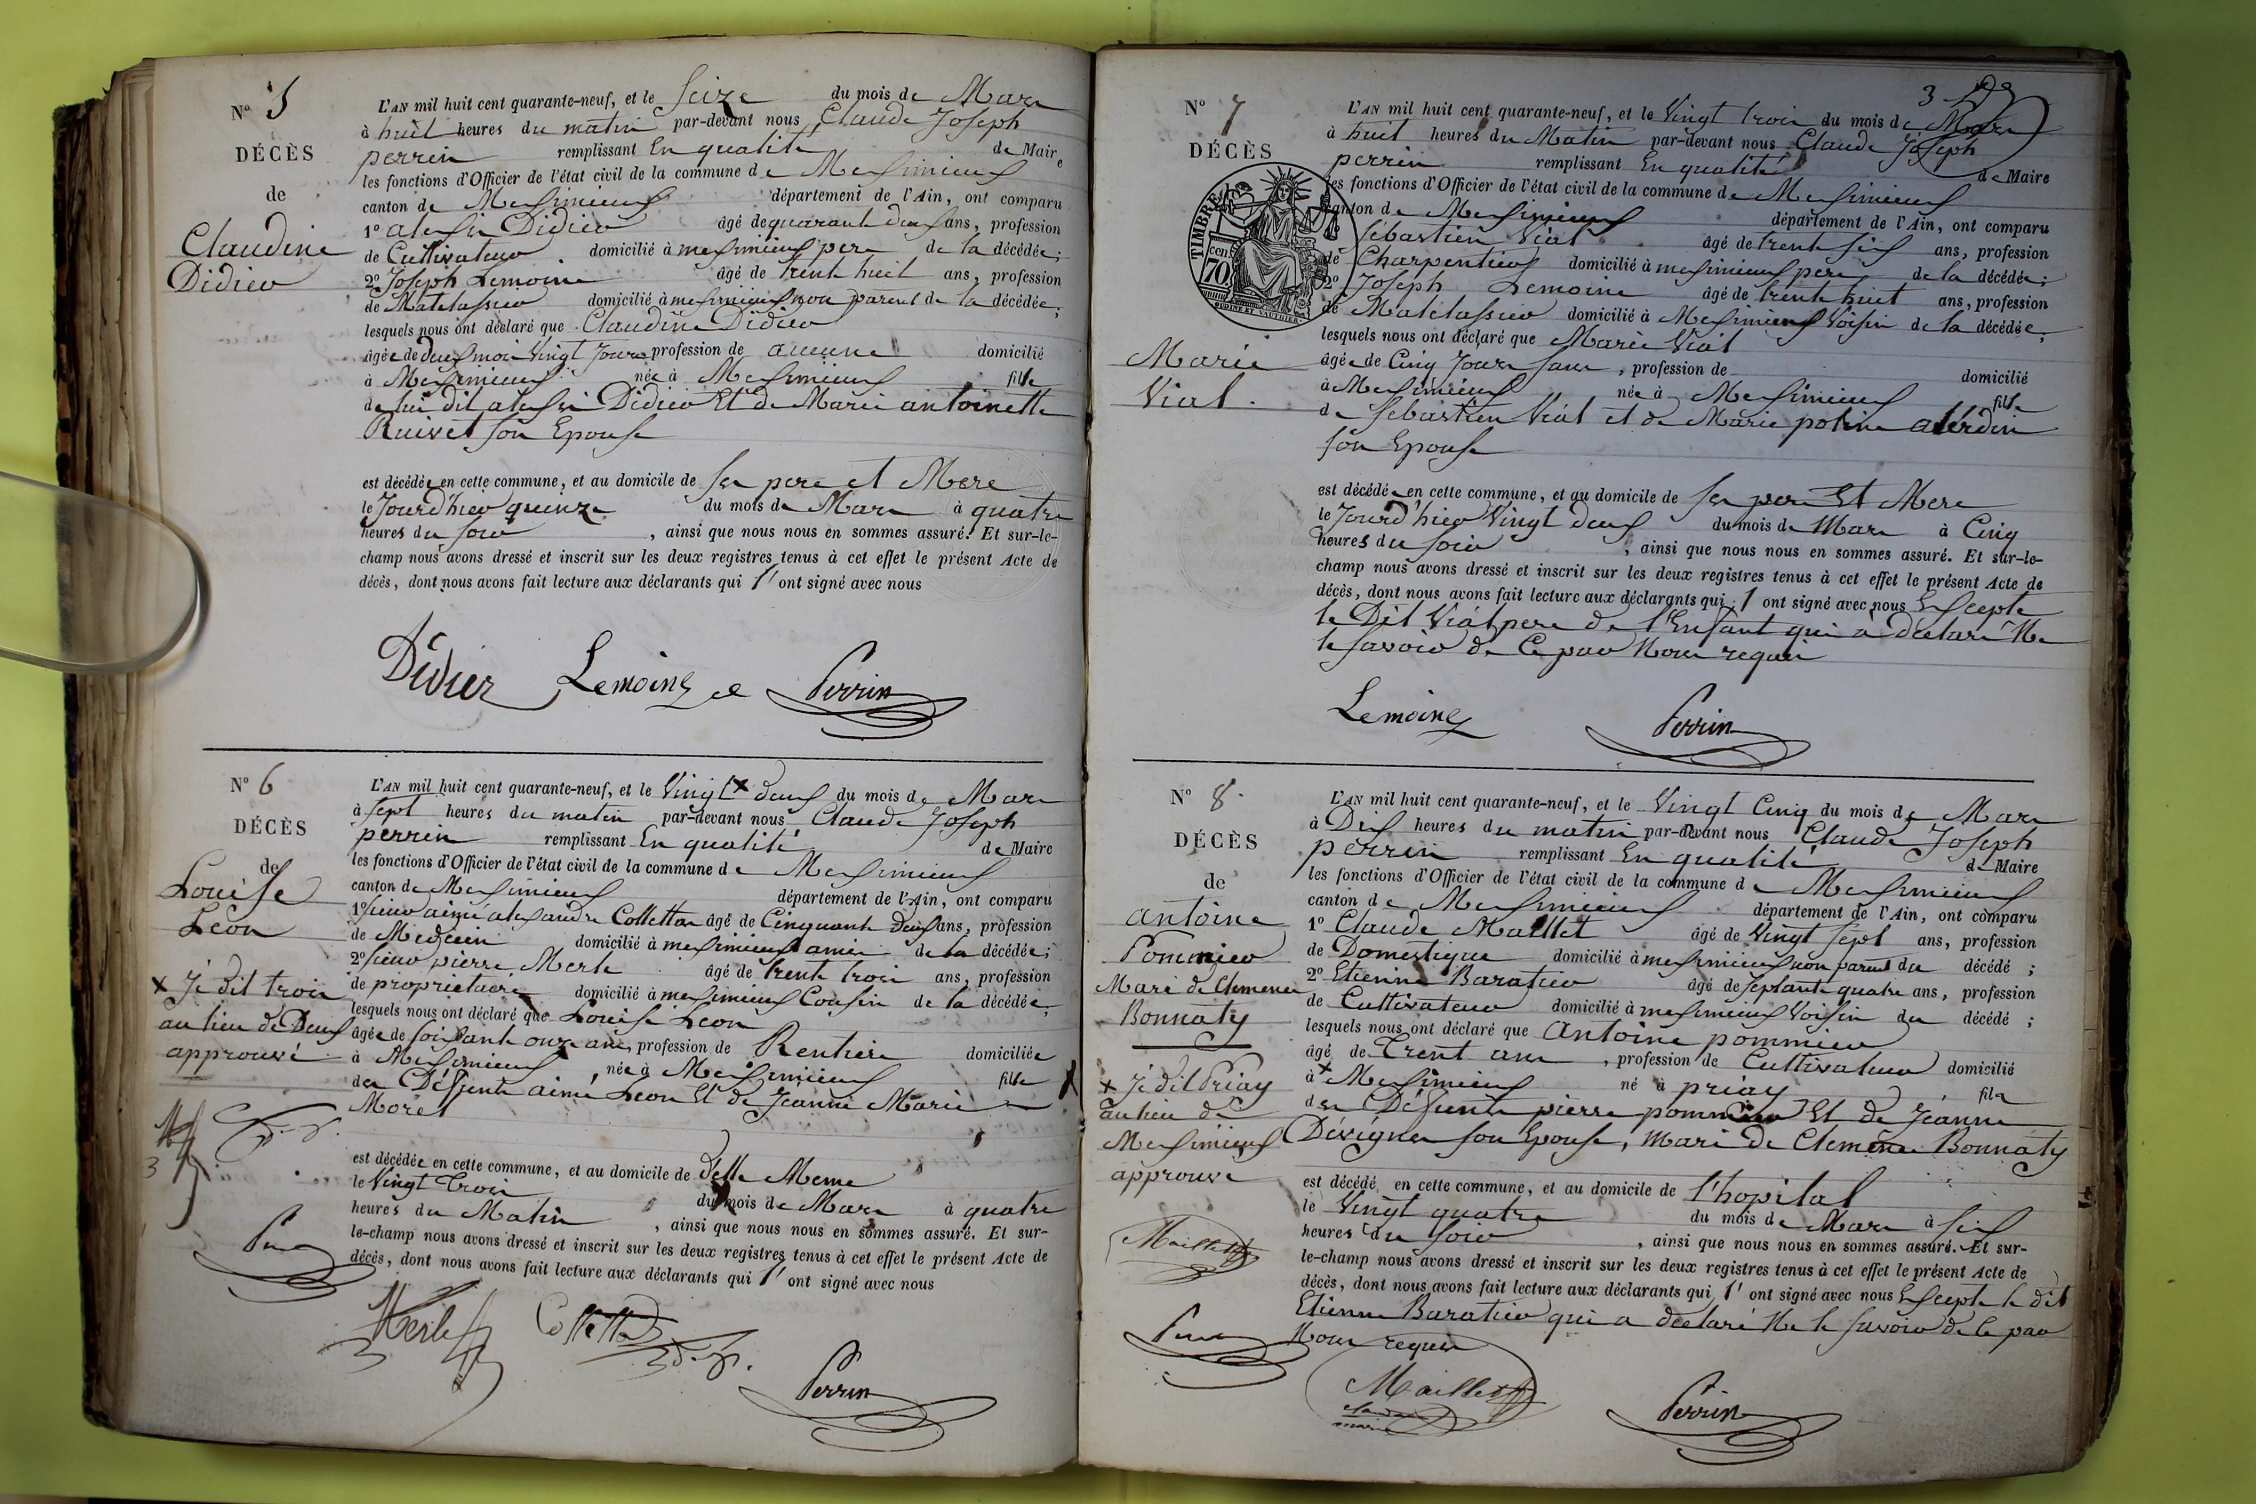 Nº 5
DÉCÈS
de
Claudine
Didier
L'AN mil huit cent quarante-neuf, et le Seize du mois de Mars
à huit heures du matin par-devant nous Claude Joseph
perrin remplissant En qualité de Maire
les fonctions d'Officier de l'état civil de la commune de Meximieux
canton de Meximieux département de l'Ain, ont comparu
1º alexi Didier âgé de quarante deux ans, profession
de Cultivateur domicilié à meximieux pere de la décédée;
2º Joseph Lemoine âgé de trente huit ans, profession
de Matelassier domicilié à meximieux non parent de la décédée;
lesquels nous ont déclaré que Claudine Didier
âgée de deux mois Vingt Jours profession de aucune domicilié
à Meximieux née à Meximieux fille
de lui dit alexi Didier Et de Marie antoinette
Ruivet son Epouse
est décédée en cette commune, et au domicile de ses pere et Mere
le Jourd'hier quinze du mois de Mars à quatre
heures du soir, ainsi que nous nous en sommes assuré. Et sur-le-
champ nous avons dressé et inscrit sur les deux registres tenus à cet effet le présent Acte de
décès, dont nous avons fait lecture aux déclarants qui l' ont signé avec nous
Didier Lemoine Perrin
Nº 6
DÉCÈS
de
Louise
Léon
x Je dit trois
au lieu de Deux
approuvé
L'AN mil huit cent quarante-neuf, et le Vingt x deux du mois de Mars
à sept heures du matin par-devant nous Claude Joseph
perrin remplissant En qualité de Maire
les fonctions d'Officier de l'état civil de la commune de Meximieux
canton de Meximieux département de l'Ain, ont comparu
1º sieur aimé alexandre Collettar âgé de Cinquante Deux ans, profession
de Medecin domicilié à meximieux amie de la décédée;
2º sieur pierre Merle âgé de trente trois ans, profession
de proprietaire domicilié à meximieux Cousin de la décédée,
lesquels nous ont déclaré que Louise Leon
âgée de soixante onze ans, profession de Rentière domiciliée
à Meximieux, née à Meximieux fille
des Deffunts aimé Leon Et de Jeanne Marie
Morel
est décédée en cette commune, et au domicile de d'elle Meme
le Vingt trois du mois de Mars à quatre
heures du Matin, ainsi que nous nous en sommes assuré. Et sur-
le-champ nous avons dressé et inscrit sur les deux registres tenus à cet effet le présent Acte de
décès, dont nous avons fait lecture aux déclarants qui l' ont signé avec nous
Merle Perrin
Nº 7
DÉCÈS
TIMBRE
70 cen
Marie
Vial.
3
L'AN mil huit cent quarante-neuf, et le Vingt trois du mois de Mars
à huit heures du Matin par-devant nous Claude Joseph
perrin remplissant En qualité de Maire
les fonctions d'Officier de l'état civil de la commune de Meximieux
canton de Meximieux département de l'Ain, ont comparu
Sebastien Vial âgé de trente six ans, profession
de Charpentier domicilié à meximieux pere de la décédée;
2º Joseph Lemoine âgé de trente huit ans, profession
de Matelassier domicilié à Meximieux Voisin de la décédée,
lesquels nous ont déclaré que Marie Vial
âgée de Cinq Jours sans, profession de domicilié
à Meximieux née à Meximieux fille
de Sebastien Vial et de Marie poline
son Epouse
est décédée en cette commune, et au domicile de ses pere Et Mere
le Jourd'hier Vingt deux du mois de Mars à Cinq
heures du soir, ainsi que nous nous en sommes assuré. Et sur-le-
champ nous avons dressé et inscrit sur les deux registres tenus à cet effet le présent Acte de
décès, dont nous avons fait lecture aux déclarants qui l' ont signé avec nous Excepte
le Dit Vial pere de l'Enfant qui a declaré Ne
le savoir de Ce par Nous requis
Lemoine Perrin
Nº 8.
DÉCÈS
de
antoine
Pommier
Mari de Clemence
Bonnaty
x Je dit Priay
au lieu de
Meximieux
approuve
Maillet
L'AN mil huit cent quarante-neuf, et le Vingt Cinq du mois de Mars
à Dix heures du matin par-devant nous Claude Joseph
perrin remplissant En qualité de Maire
les fonctions d'Officier de l'état civil de la commune de Meximieux
canton de Meximieux département de l'Ain, ont comparu
1º Claude Maillet âgé de Vingt sept ans, profession
de Domestique domicilié à meximieux non parent du décédé;
2º Etienne Baratier âgé de septante quatre ans, profession
de Cultivateur domicilié à meximieux Voisin du décédé;
lesquels nous ont déclaré que antoine pommier
âgé de Trente ans, profession de Cultivateur domicilié
à x Meximieux né à priay fils
des Deffunts pierre pommier Et de Jeanne
Dévigne son Epouse, Mari de Clemence Bonnaty
est décédé en cette commune, et au domicile de l'hopital
le Vingt quatre du mois de Mars à six
heures du soir, ainsi que nous nous en sommes assuré. Et sur-
le-champ nous avons dressé et inscrit sur les deux registres tenus à cet effet le présent Acte de
décès, dont nous avons fait lecture aux déclarants qui l' ont signé avec nous Excepte le dit
Etienne Baratier qui a declaré Ne le savoir de Ce par
Nous requis
Maillet Perrin